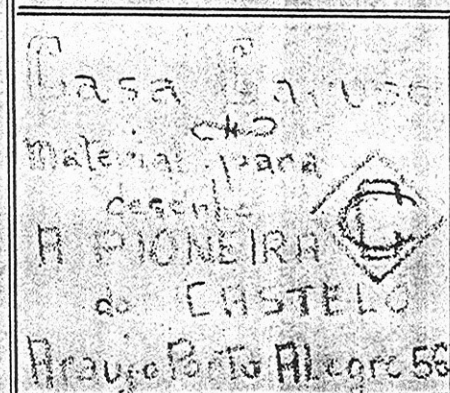 Casa Caruso
Material para
desenho
A PIONEIRA
do CASTELO
C
Araujo Porto Alegre 56